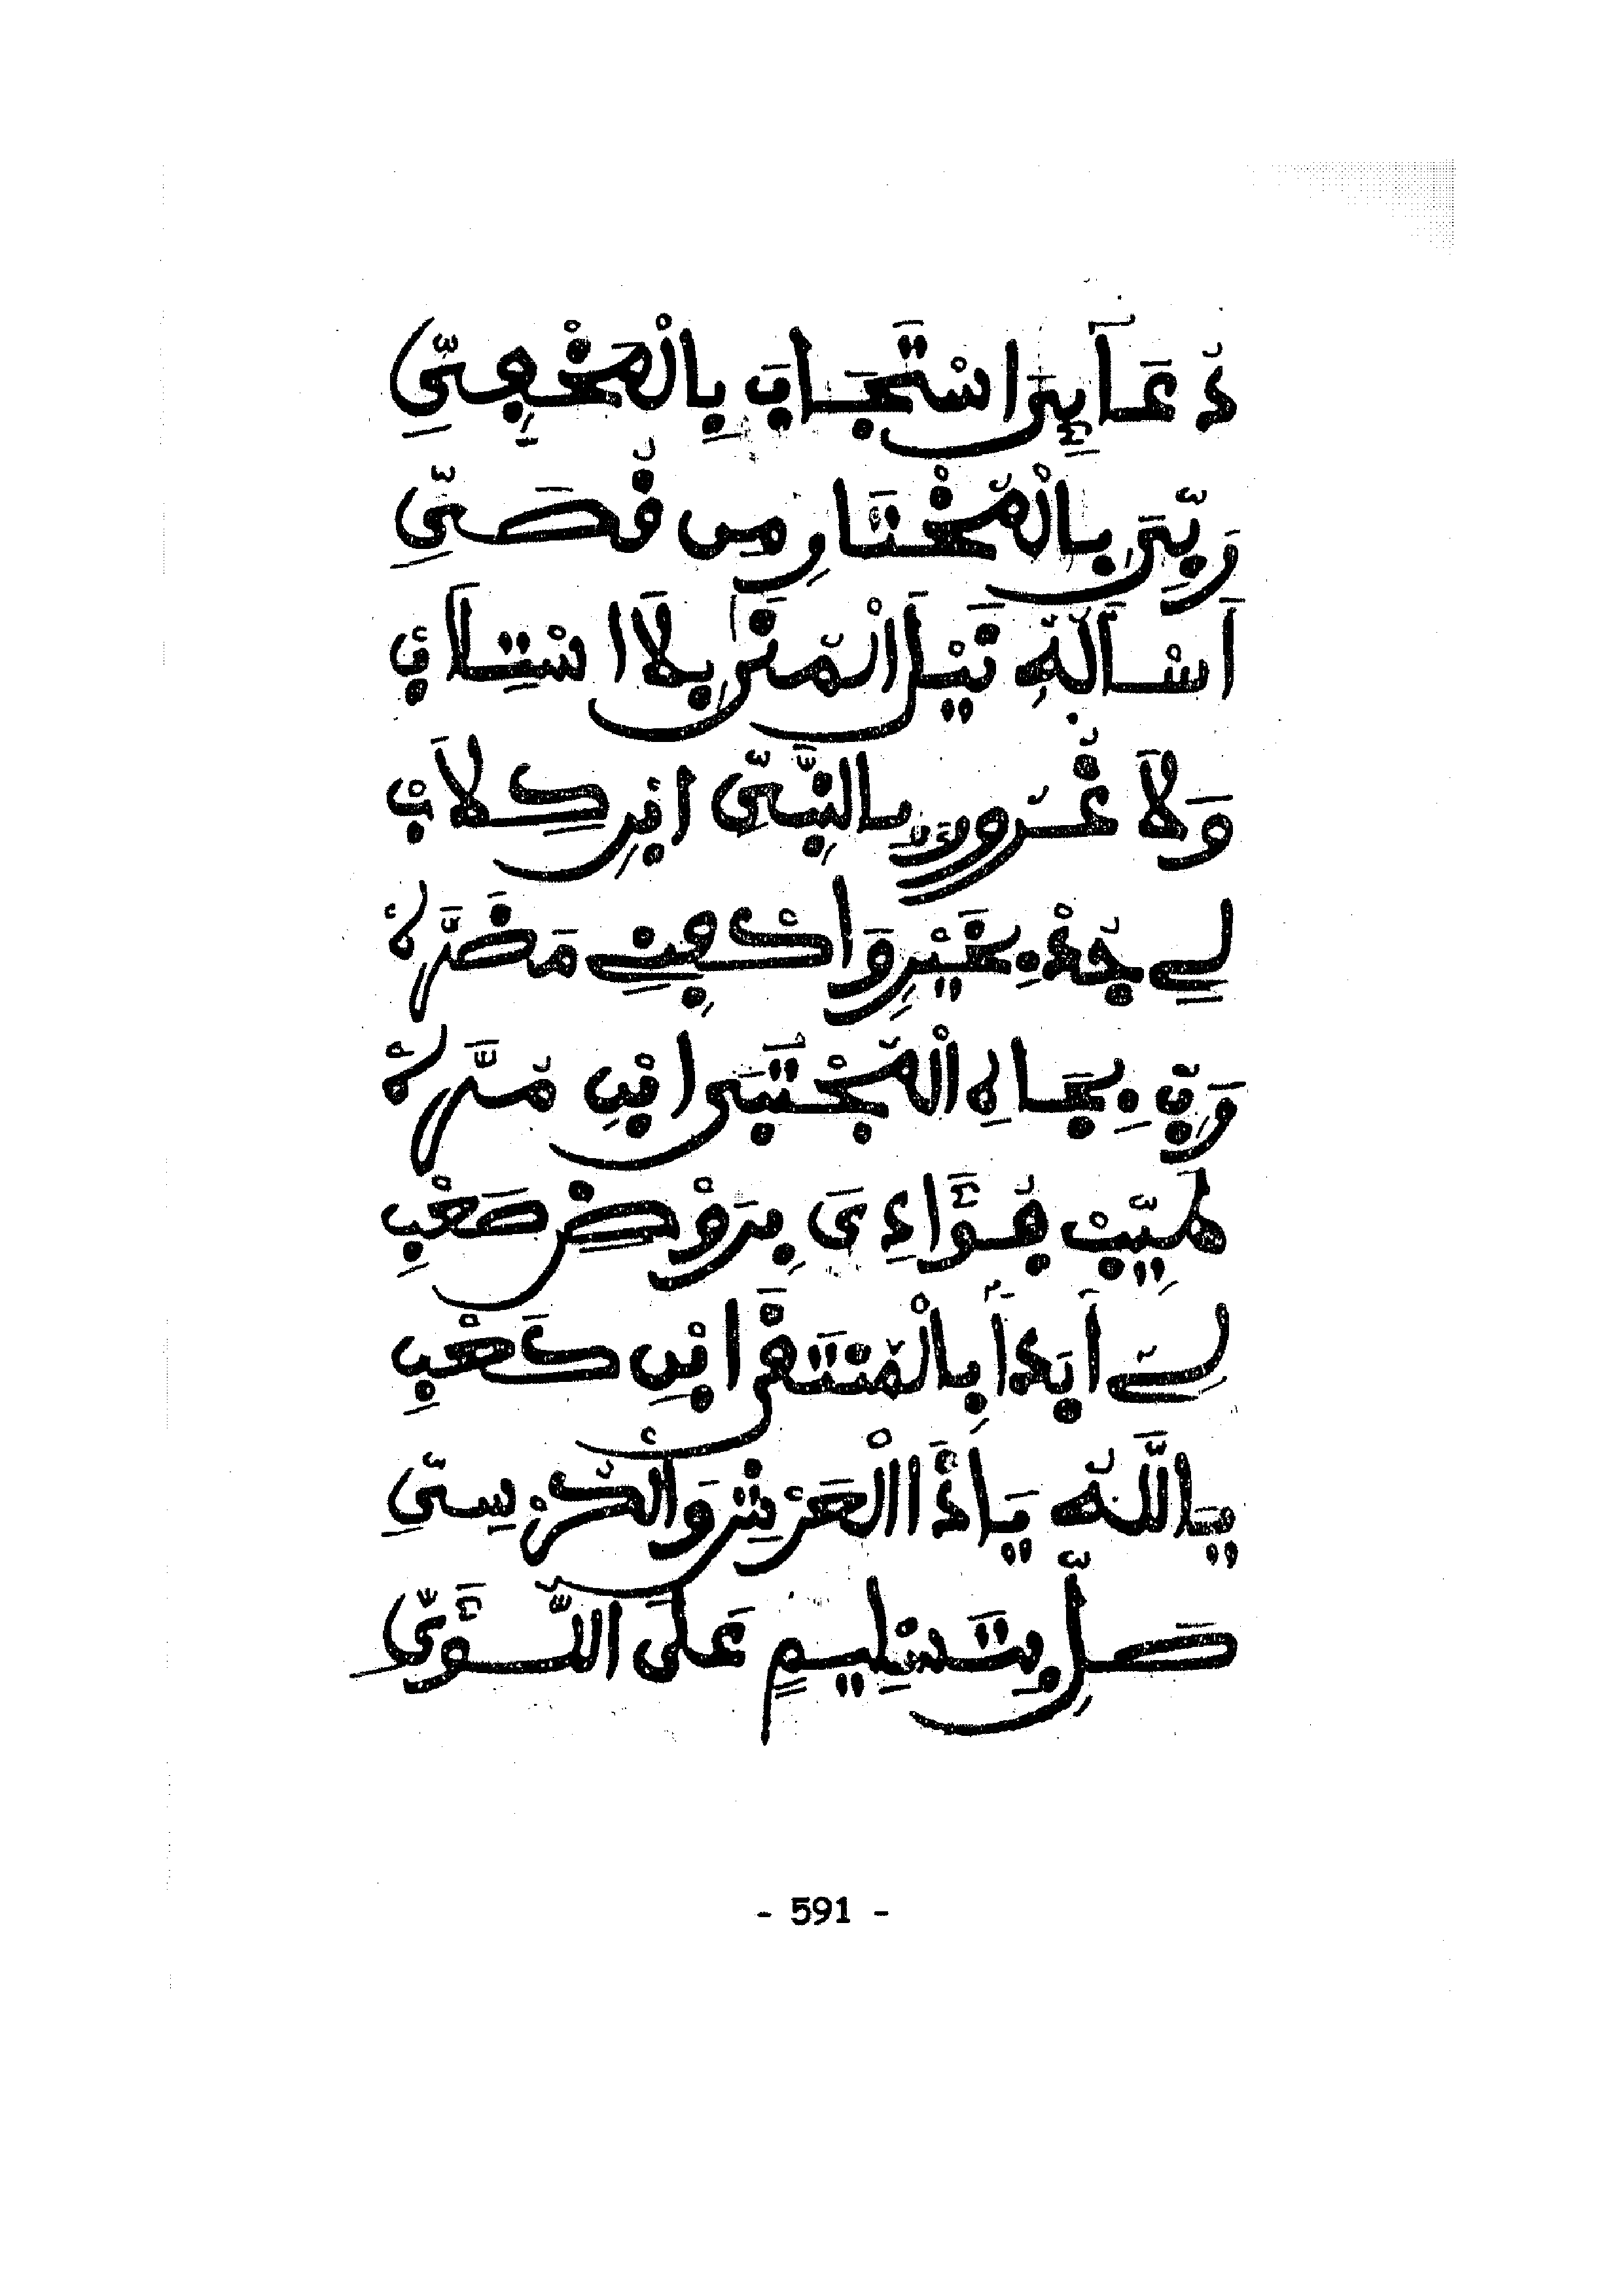 دُعَآءِىَ اسْتَجَابَ بِالْمُخْفِىِّ
رَبِّىَ بِالْمُخْتَارِ مِن قُصَىِّ
أَسْأَلُهُ نَيْلَ الْمُنَىٰ بِلَا اسْتِلَابْ
وَلَا غُرُورٍ بِالنَّبِىِّ ابْنِ كِلَابْ
لِى جُدْ بِخَيْرٍ وَاكْفِنِى مَضَرَّهْ
رَبِّ بِجَاهِ الْمُجْتَبَى ابْنِ مُرَّهْ
هَيِّبْ فُؤَادِىَ بِرَوْضِ صَعْبِ
لِى أَبَدًا بِالْمُنْتَقَى ابْنِ كَعْبِ
يَاللَّهُ يَاذَا الْعَرْشِ وَالْكُرْسِىِّ
صَلِّ بِتَسْلِيمٍ عَلَى اللُّؤَىِّ
- 591 -